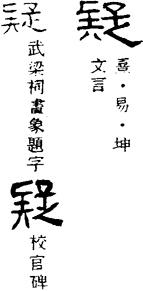 疑
熹・易・坤
文言
疑
武梁祠畫象題字
疑
校官碑